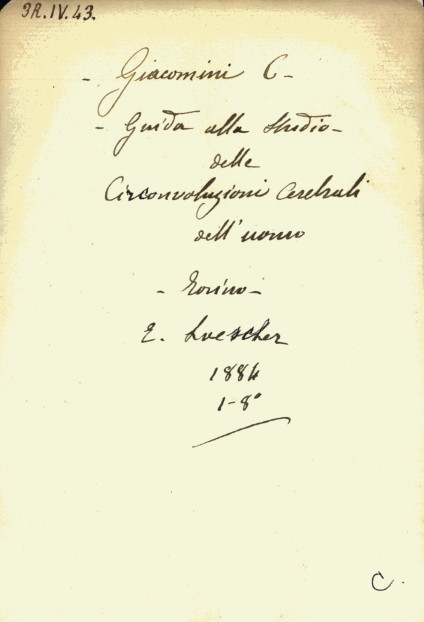 3R.IV.43.
- Giacomini C -
- Guida allo studio -
delle
Circonvoluzioni Cerebrali
dell'uomo
- Torino -
E. Loescher
1884
1-8°
C.